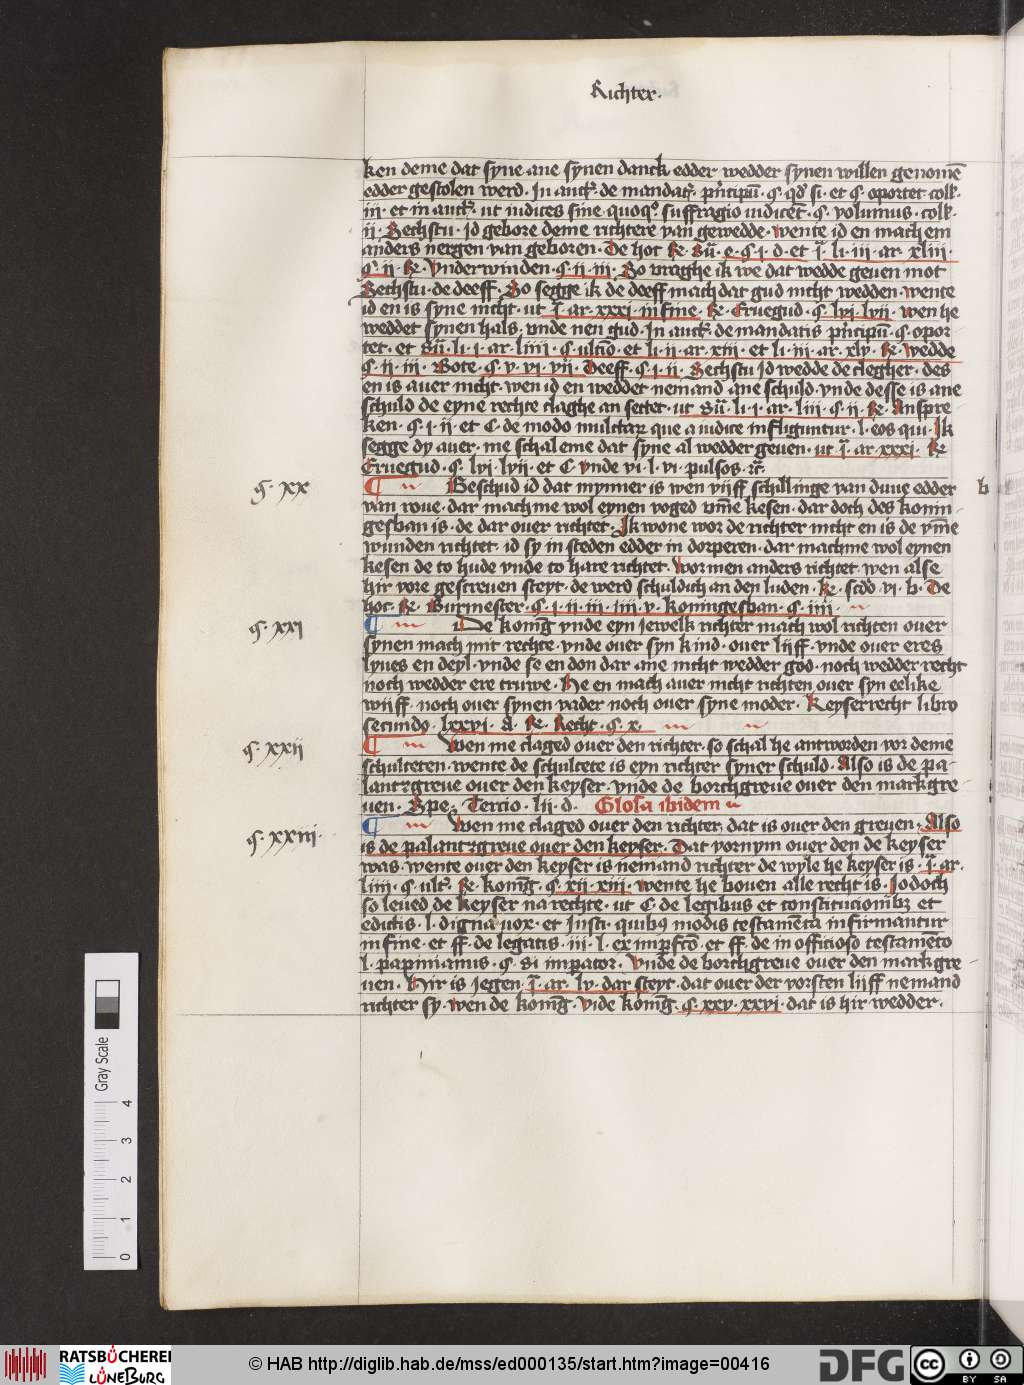 Richter.
ken deme dat syne ane synen danck edder wedder synen willen genomē
edder gestolen werd. In auct. de mandat. pͥncipū. ꝙ. qd si. et ꝙ. oportet. coll.
iii. et in auct. ut iudices sine quoqꝫ suffragio iudicet. ꝙ. volumus. coll.
ii. Sechstu. id gebore deme richtere van gewedde. wente id en mach em
anders nergen van geboren. De hot. Re. Sū. e. ꝙ. i. d. et i. li. iii. ar. xliii.
ꝙ. ii. Re. Vnderwinden. ꝙ. ii. iii. So vraghe ik we dat wedde geuen mot
Sechstu. de deeff. So segge ik de deeff mach dat gud nicht wedden. wente
id en is syne nicht. ut i. ar. xxxi. in fine. Re. Eruegud. ꝙ. lvi. lvii. wen he
weddet synen hals vnde nen gud. In auct. de mandatis pͥncipū. ꝙ. opor
tet. et Sū. li. i. ar. liiii. ꝙ. ultio. et li. ii. ar. xiii. et li. iii. ar. xlv. Re. Wedde
ꝙ. ii. iii. Bote. ꝙ. v. vi. vii. Deeff. ꝙ. i. ii. Sechstu id wedde de clegher. des
en is auer nicht. wen id en weddet nemand ane schuld. vnde desse is ane
schuld de eyne rechte claghe an settet. ut Sū. li. i. ar. liii. ꝙ. ii. Re. Anspre
ken. ꝙ. i. ii. et C. de modo mulctarꝝ que a iudice infliguntur. l. eos qui. Ik
segge dy auer. me schal eme dat syne al wedder geuen. ut i. ar. xxxi. Re
Eruegud. ꝙ. lvi. lvii. et C. vnde vi. l. vi. pulsos. ꝛc.
ꝙ. xx
Beschud id dat mynner is wen viiff schillinge van duue edder
b
van roue. dar mach me wol eynen voged vm̄e kesen. dar doch des konin
gesban is. de dar ouer richter. Ik wone wor de richter nicht en is de vm̄e
wunden richtet. id sy in steden edder in dorperen. dar mach me wol eynen
kesen de to hude vnde to hare richtet. Wor men anders richtet. wen alse
hir vore gescreuen steyt. de werd schuldich an den luden. Re. scdo. vi. b. De
hot. Re. Burmester. ꝙ. i. ii. iii. iiii. v. Koningesban. ꝙ. iiii.
ꝙ. xxi
De konig vnde eyn jewelk richter mach wol richten ouer
synen mach mit rechte. vnde ouer syn kind. ouer liiff. vnde ouer eres
lyues en deyl. vnde se en don dar ane nicht wedder god. noch wedder recht
noch wedder ere truwe. He en mach auer nicht richten ouer syn eelike
wiiff. noch ouer synen vader noch ouer syne moder. Keyserrecht libro
secundo. lxxvi. d. Re. Recht. ꝙ. x.
ꝙ. xxii
Wen me claged ouer den richter. so schal he antworden vor deme
schulteten. wente de schultete is eyn richter syner schuld. Also is de pa-
lantzgreue ouer den keyser. vnde de borchgreue ouer den markgre
uen. Spe. Tercio. lii. d. Glosa ibidem
ꝙ. xxiii.
Wen me claged ouer den richter. dat is ouer den greuen. Also
is de palantzgreue ouer den keyser. Dat vornym ouer den de keyser
was. wente ouer den keyser is nemand richter de wyle he keyser is. i. ar.
liiii. ꝙ. ult. Re. konig. ꝙ. xii. xiii. wente he bouen alle recht is. Jodoch
so leued de keyser na rechte. ut C. de legibus et constitucionibꝫ et
edictis. l. digna vox. et Insti. quibus modis testamēta infirmantur
in fine. et ff. de legatis. iii. l. ex impfcto. et ff. de in officioso testamēto
l. papinianus. ꝙ. Si impator. Vnde de borchgreue ouer den markgre
uen. Hir is jegen. i. ar. lv. dar steyt. dat ouer der vorsten liiff nemand
richter sy. wen de konig. Vide konig. ꝙ. xxv. xxvi. dat is hir wedder.
Gray Scale
0 1 2 3 4
RATSBÜCHEREI
LÜNEBURG
© HAB http://diglib.hab.de/mss/ed000135/start.htm?image=00416
DFG
cc
BY SA